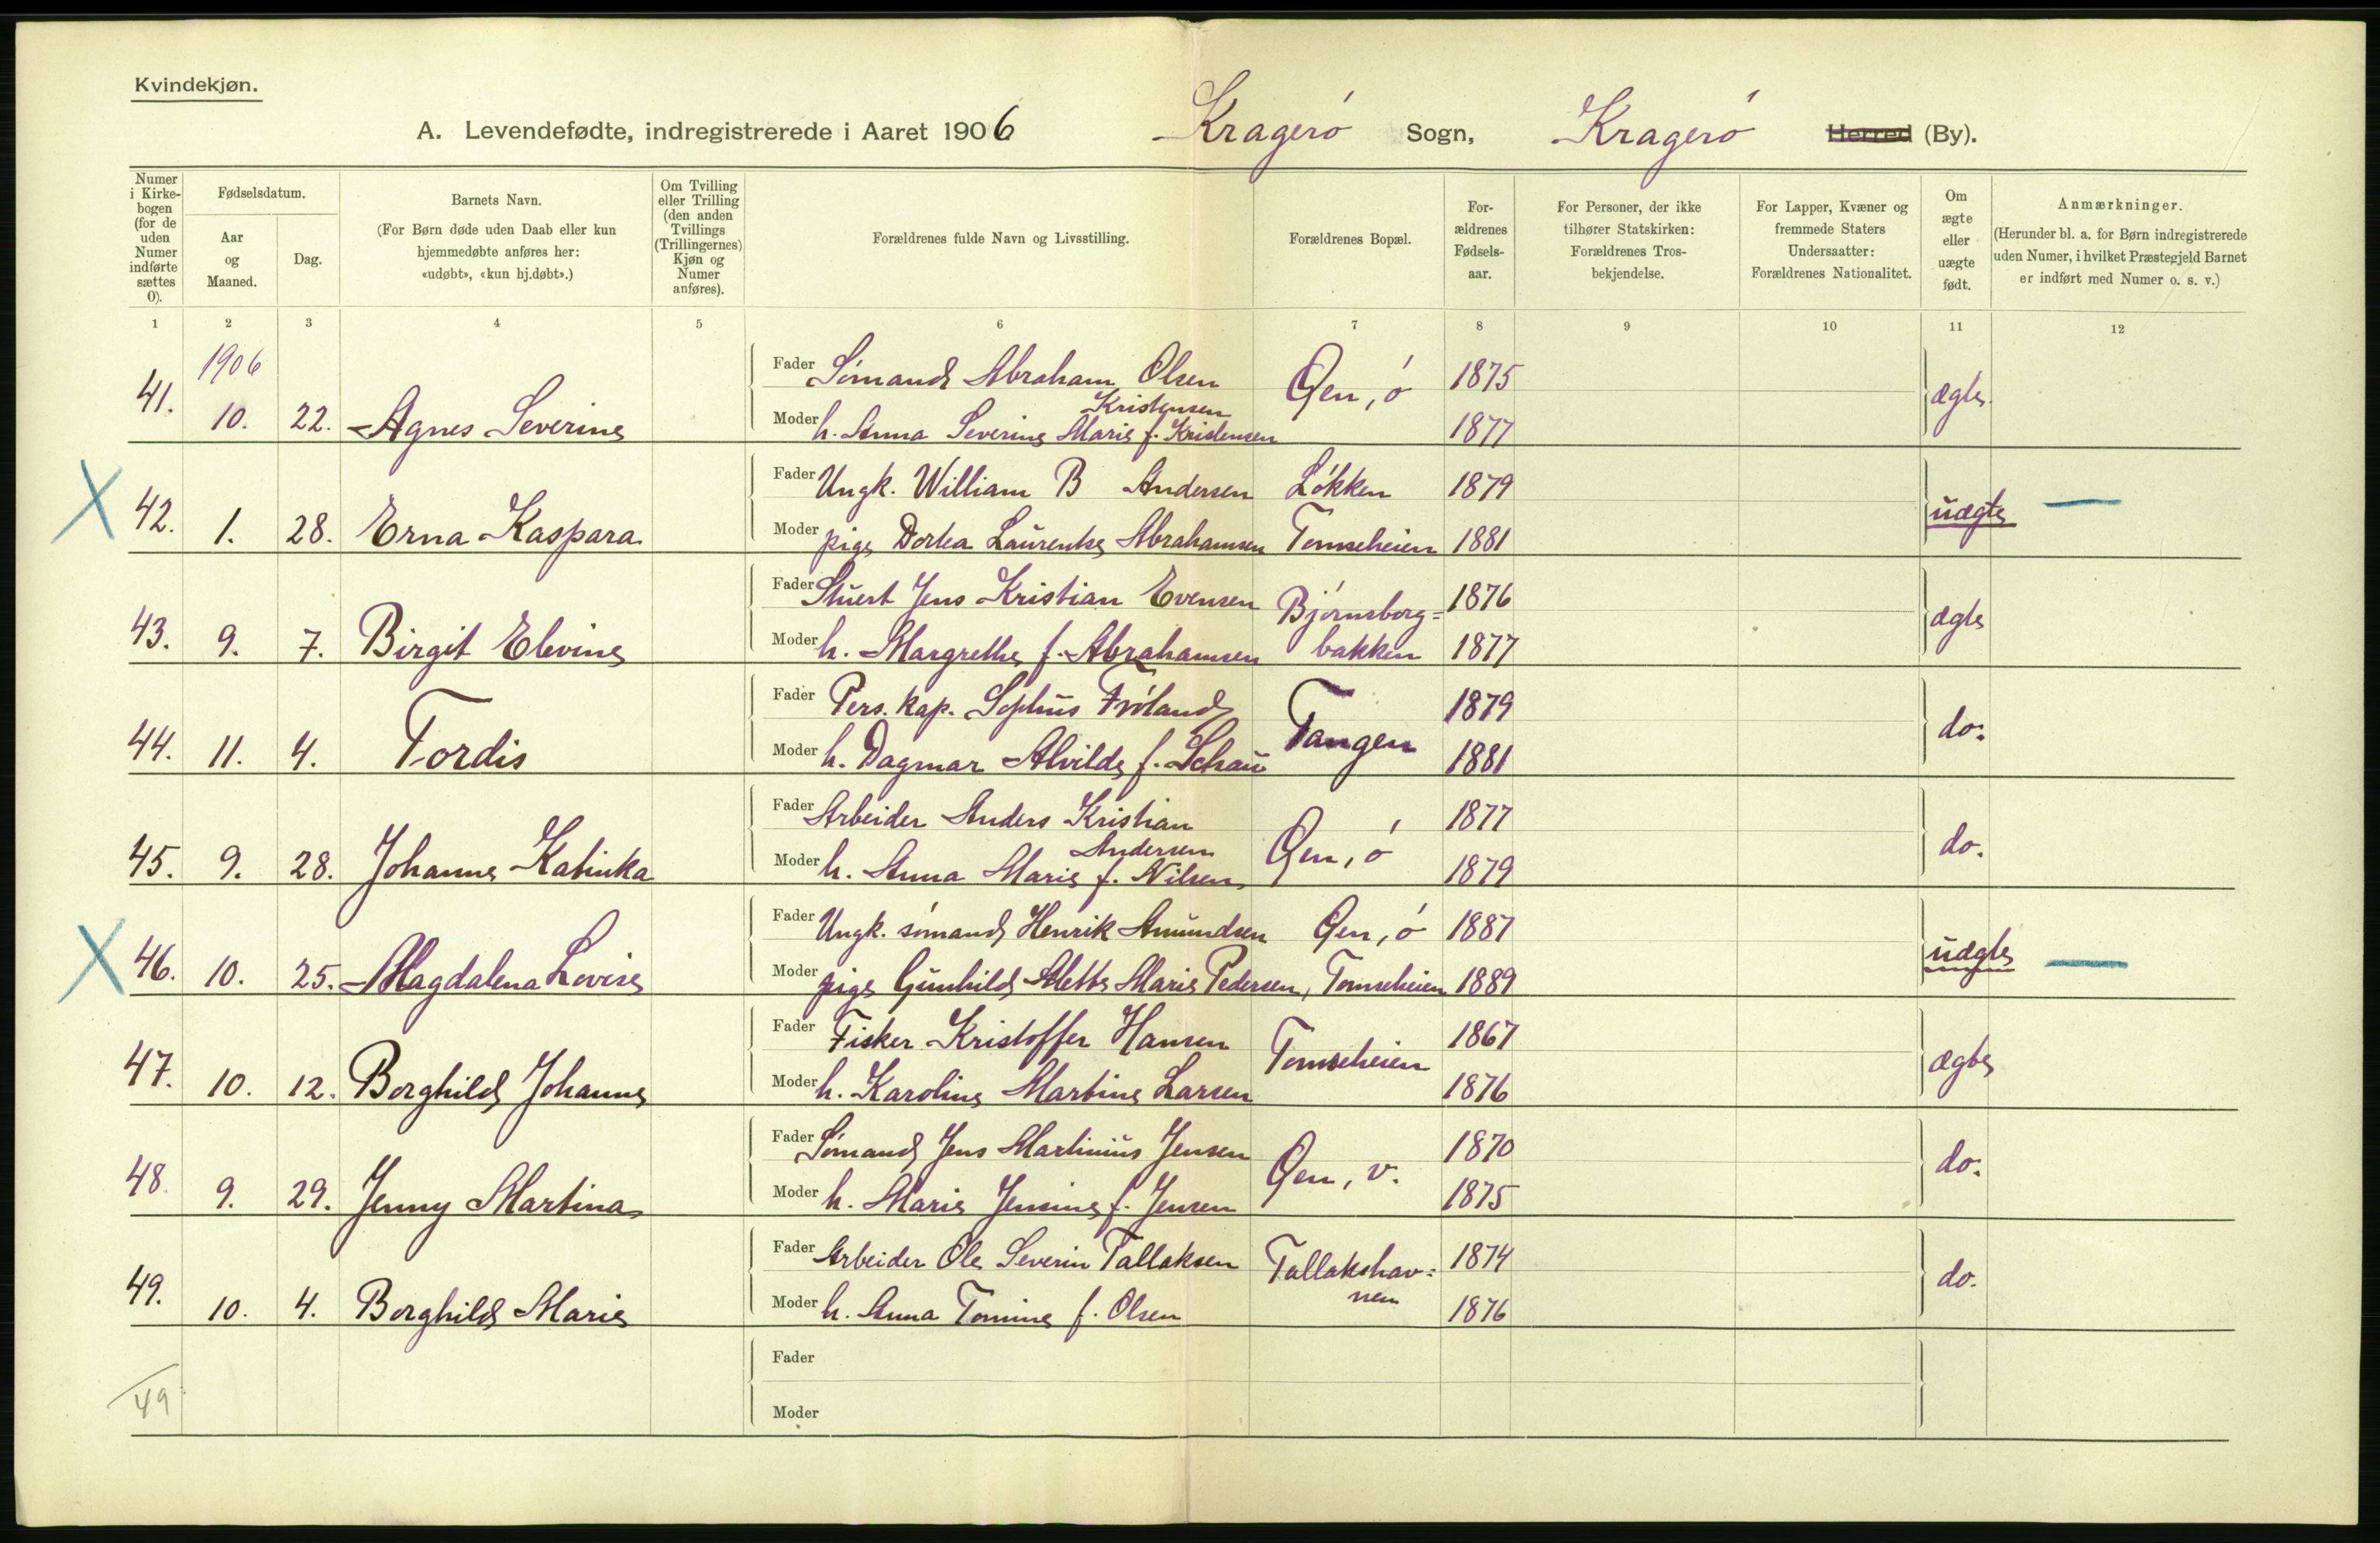 Kvindekjøn.
A. Levendefødte, indregistrerede i Aaret 1906 Kragerø Sogn, Kragerø Herred (By).
Numer i Kirkebogen (for de uden Numer indførte sættes 0).
Fødselsdatum.
Aar og Maaned.
Dag.
Barnets Navn.
(For Børn døde uden Daab eller kun
hjemmedøbte anføres her:
«udøbt», «kun hj.døbt».)
Om Tvilling
eller Trilling
(den anden
Tvillings
(Trillingernes)
Kjøn og
Numer
anføres).
Forældrenes fulde Navn og Livsstilling.
Forældrenes Bopæl.
For-
ældrenes
Fødsels-
aar.
For Personer, der ikke
tilhører Statskirken:
Forældrenes Tros-
bekjendelse.
For Lapper, Kvæner og
fremmede Staters
Undersaatter:
Forældrenes Nationalitet.
Om
ægte
eller
uægte
født.
Anmærkninger.
(Herunder bl. a. for Børn indregistrerede
uden Numer, i hvilket Præstegjeld Barnet
er indført med Numer o. s. v.)
1 2 3 4 5 6 7 8 9 10 11 12
1906
41. 10. 22. Agnes Severine
Fader Sømand Abraham Olsen Øen, ø 1875 ægte
Kristensen
Moder h. Anna Severine Marie f. Kristensen 1877
X 42. 1. 28. Erna Kaspara
Fader Ungk. William B Andersen Løkken 1879 uægte —
Moder pige Dortea Laurentse Abrahamsen Tomseheien 1881
43. 9. 7. Birgit Elevine
Fader Stuert Jens Kristian Evensen Bjørnsborg= 1876 ægte
Moder h. Margrethe f. Abrahamsen bakken 1877
44. 11. 4. Tordis
Fader Pers. kap. Sophus Frøland Tangen 1879 do.
Moder h. Dagmar Alvilde f. Schau 1881
45. 9. 28. Johanne Katinka
Fader Arbeider Anders Kristian Øen, ø 1877 do.
Andersen
Moder h. Anna Marie f. Nilsen 1879
X 46. 10. 25. Magdalena Lovise
Fader Ungk. sømand Henrik Amundsen Øen, ø 1887 uægte —
Moder pige Gunhild Mette Marie Pedersen, Tomseheien 1889
47. 10. 12. Borghild Johanne
Fader Fisker Kristoffer Hansen Tomseheien 1867 ægte
Moder h. Karoline Martine Larsen 1876
48 9. 29. Jenny Martina
Fader Sømand Jens Martinius Jensen Øen, v. 1870 do.
Moder h. Marie Jensine f. Jensen 1875
49. 10. 4. Borghild Marie
Fader Arbeider Ole Severin Tallaksen Tallakshav= 1874 do.
nen
Moder h. Anna Tomine f. Olsen 1876
Fader
49
Moder